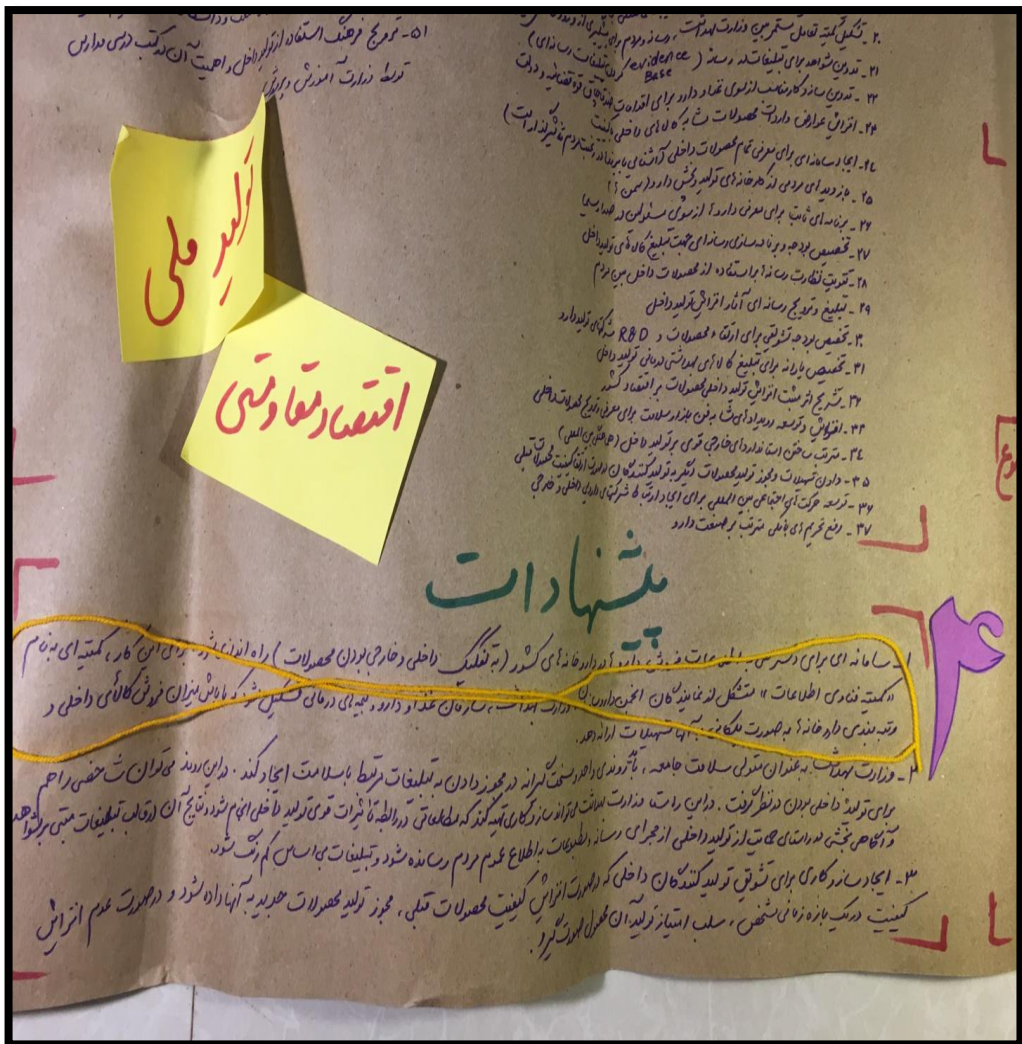 ۲۰- تشکیل کمیته تعامل مستمر بین وزارت بهداشت، رسانه و مردم برای
۲۱- تدوین شواهد برای تبلیغات در رسانه (evidence Base / تبلیغات رسانه‌ای)
۲۲- تدوین ساز و کار مناسب از سوی غذا و دارو برای اقدامات قوه قضائیه و دولت
۲۳- افزایش عوارض واردات محصولات مشابه کالاهای داخلی با کیفیت
۲۴- ایجاد سامانه‌ای برای معرفی تمام محصولات داخلی
۲۵- بازدیدهای مردمی از کارخانه‌های تولید و پخش دارو
۲۶- برنامه‌های ثابت برای معرفی داروها از سوی مسئولین در صدا و سیما
۲۷- تخصیص بودجه و برنامه سازی رسانه‌ای جهت تبلیغ کالاهای تولید داخل
۲۸- تقویت نظارت رسانه‌ها بر استفاده از محصولات داخل بین مردم
۲۹- تبلیغ و ترویج رسانه‌ای آثار افزایش تولید داخل
۳۰- تخصیص بودجه تشویقی برای ارتقاء محصولات و R&D شرکتهای تولید دارو
۳۱- تخصیص یارانه برای تبلیغ کالاهای بهداشتی درمانی تولید داخل
۳۲- تشریح اثر مثبت افزایش تولید داخلی محصولات بر اقتصاد کشور
۳۳- افزایش و توسعه رویدادهای مشابه فن بازار سلامت برای معرفی و ترویج محصولات داخلی
۳۴- مترتب ساختن استانداردهای خارجی قوی بر تولید داخل
۳۵- دادن تسهیلات و مجوز تولید محصولات دیگر به تولید کنندگان در صورت ارتقا کیفیت محصولات قبلی
۳۶- توسعه حرکت‌های اجتماعی بین المللی برای ایجاد ارتباط با شرکتهای داروی داخلی و خارجی
۳۷- رفع تحریم‌های بانکی مترتب بر صنعت دارو
۵۱- ترویج فرهنگ استفاده از تولید داخل و اهمیت آن در کتب درسی مدارس
توسط وزارت آموزش و پرورش
تولید ملی
اقتصاد مقاومتی
پیشنهادات
۴
۱- سامانه ای برای دسترسی به اطلاعات فروش داروها در داروخانه‌های کشور (به تفکیک داخلی و خارجی بودن محصولات) راه اندازی شود. برای این کار، کمیته‌ای به نام
«کمیته فناوری اطلاعات» متشکل از نمایندگان انجمن داروسازان، وزارت بهداشت، سازمان غذا و دارو و بیمه‌های درمانی تشکیل شود که با پایش میزان فروش کالاهای داخلی و
رتبه بندی داروخانه‌ها به صورت پلکانی به آنها تسهیلات ارائه دهد.
۲- وزارت بهداشت به عنوان متولی سلامت جامعه، روندی واحد و سخت گیرانه در مجوز دادن به تبلیغات مرتبط با سلامت ایجاد کند. در این روند می‌توان شاخصی را هم
برای تولید داخلی بودن در نظر گرفت. در این راستا وزارت بهداشت می‌تواند ساز و کاری تهیه کند که مطالعاتی در رابطه با تاثیرات قوی تولید داخلی انجام شود و نتایج آن در قالب تبلیغات مبتنی بر شواهد
و آگاهی بخشی در راستای حمایت از تولید داخلی از مجرای رسانه و مطبوعات به اطلاع عموم مردم رسانده شود و تبلیغات بی اساس کم رنگ شود.
۳- ایجاد ساز و کاری برای تشویق تولید کنندگان داخلی که در صورت افزایش کیفیت محصولات قبلی، مجوز تولید محصولات جدید به آنها داده شود و در صورت عدم افزایش
کیفیت در یک بازه زمانی مشخص، سلب امتیاز تولید آن محصول صورت گیرد.